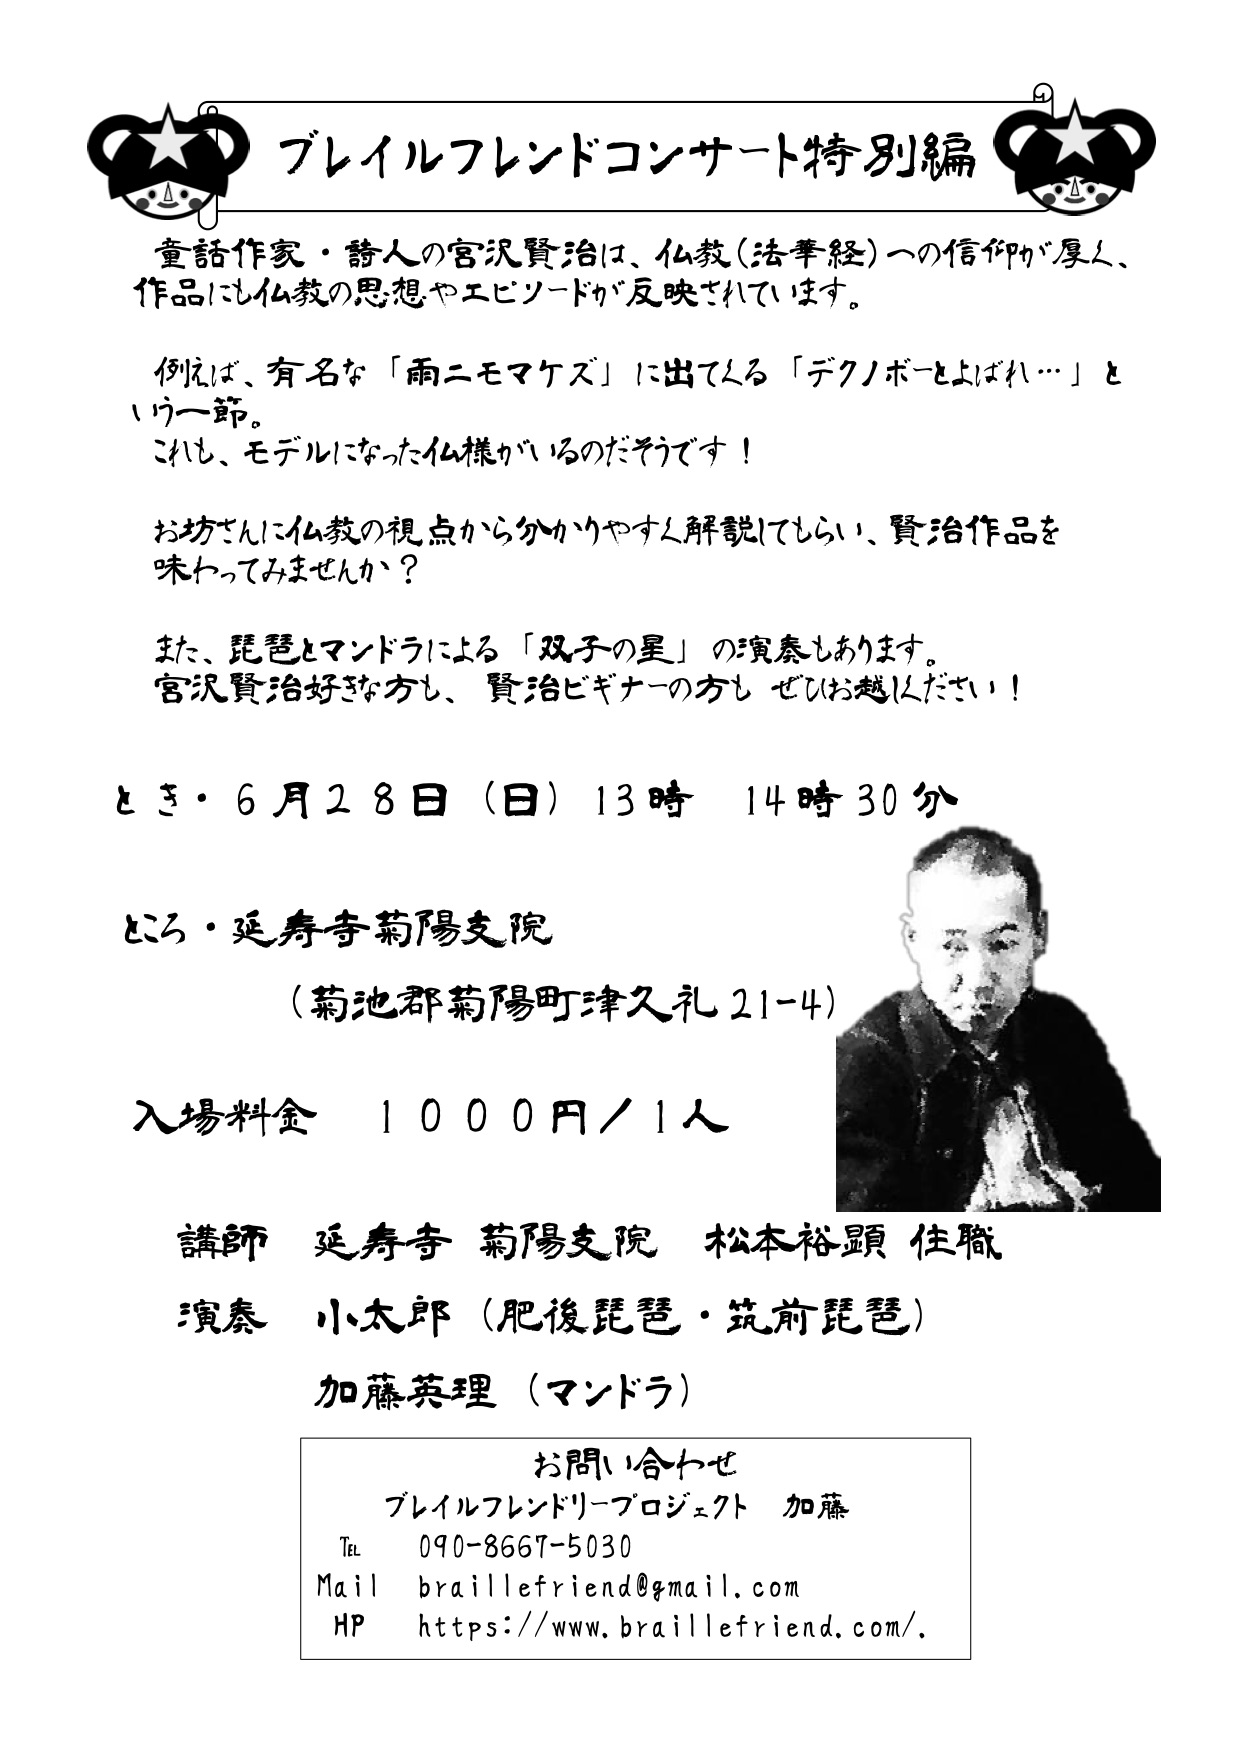 ブレイルフレンドコンサート特別編
童話作家・詩人の宮沢賢治は、仏教（法華経）への信仰が厚く、
作品にも仏教の思想やエピソードが反映されています。
例えば、有名な「雨ニモマケズ」に出てくる「デクノボーとよばれ…」と
いう一節。
これも、モデルになった仏様がいるのだそうです！
お坊さんに仏教の視点から分かりやすく解説してもらい、賢治作品を
味わってみませんか？
また、琵琶とマンドラによる「双子の星」の演奏もあります。
宮沢賢治好きな方も、賢治ビギナーの方も ぜひお越しください！
とき・６月２８日（日）13時　14時30分
ところ・延寿寺菊陽支院
（菊池郡菊陽町津久礼21-4）
入場料金　１０００円／１人
講師　延寿寺 菊陽支院　松本裕顕 住職
演奏　小太郎（肥後琵琶・筑前琵琶）
加藤英理（マンドラ）
お問い合わせ
ブレイルフレンドリープロジェクト　加藤
℡　090-8667-5030
Mail　braillefriend@gmail.com
HP　https://www.braillefriend.com/.